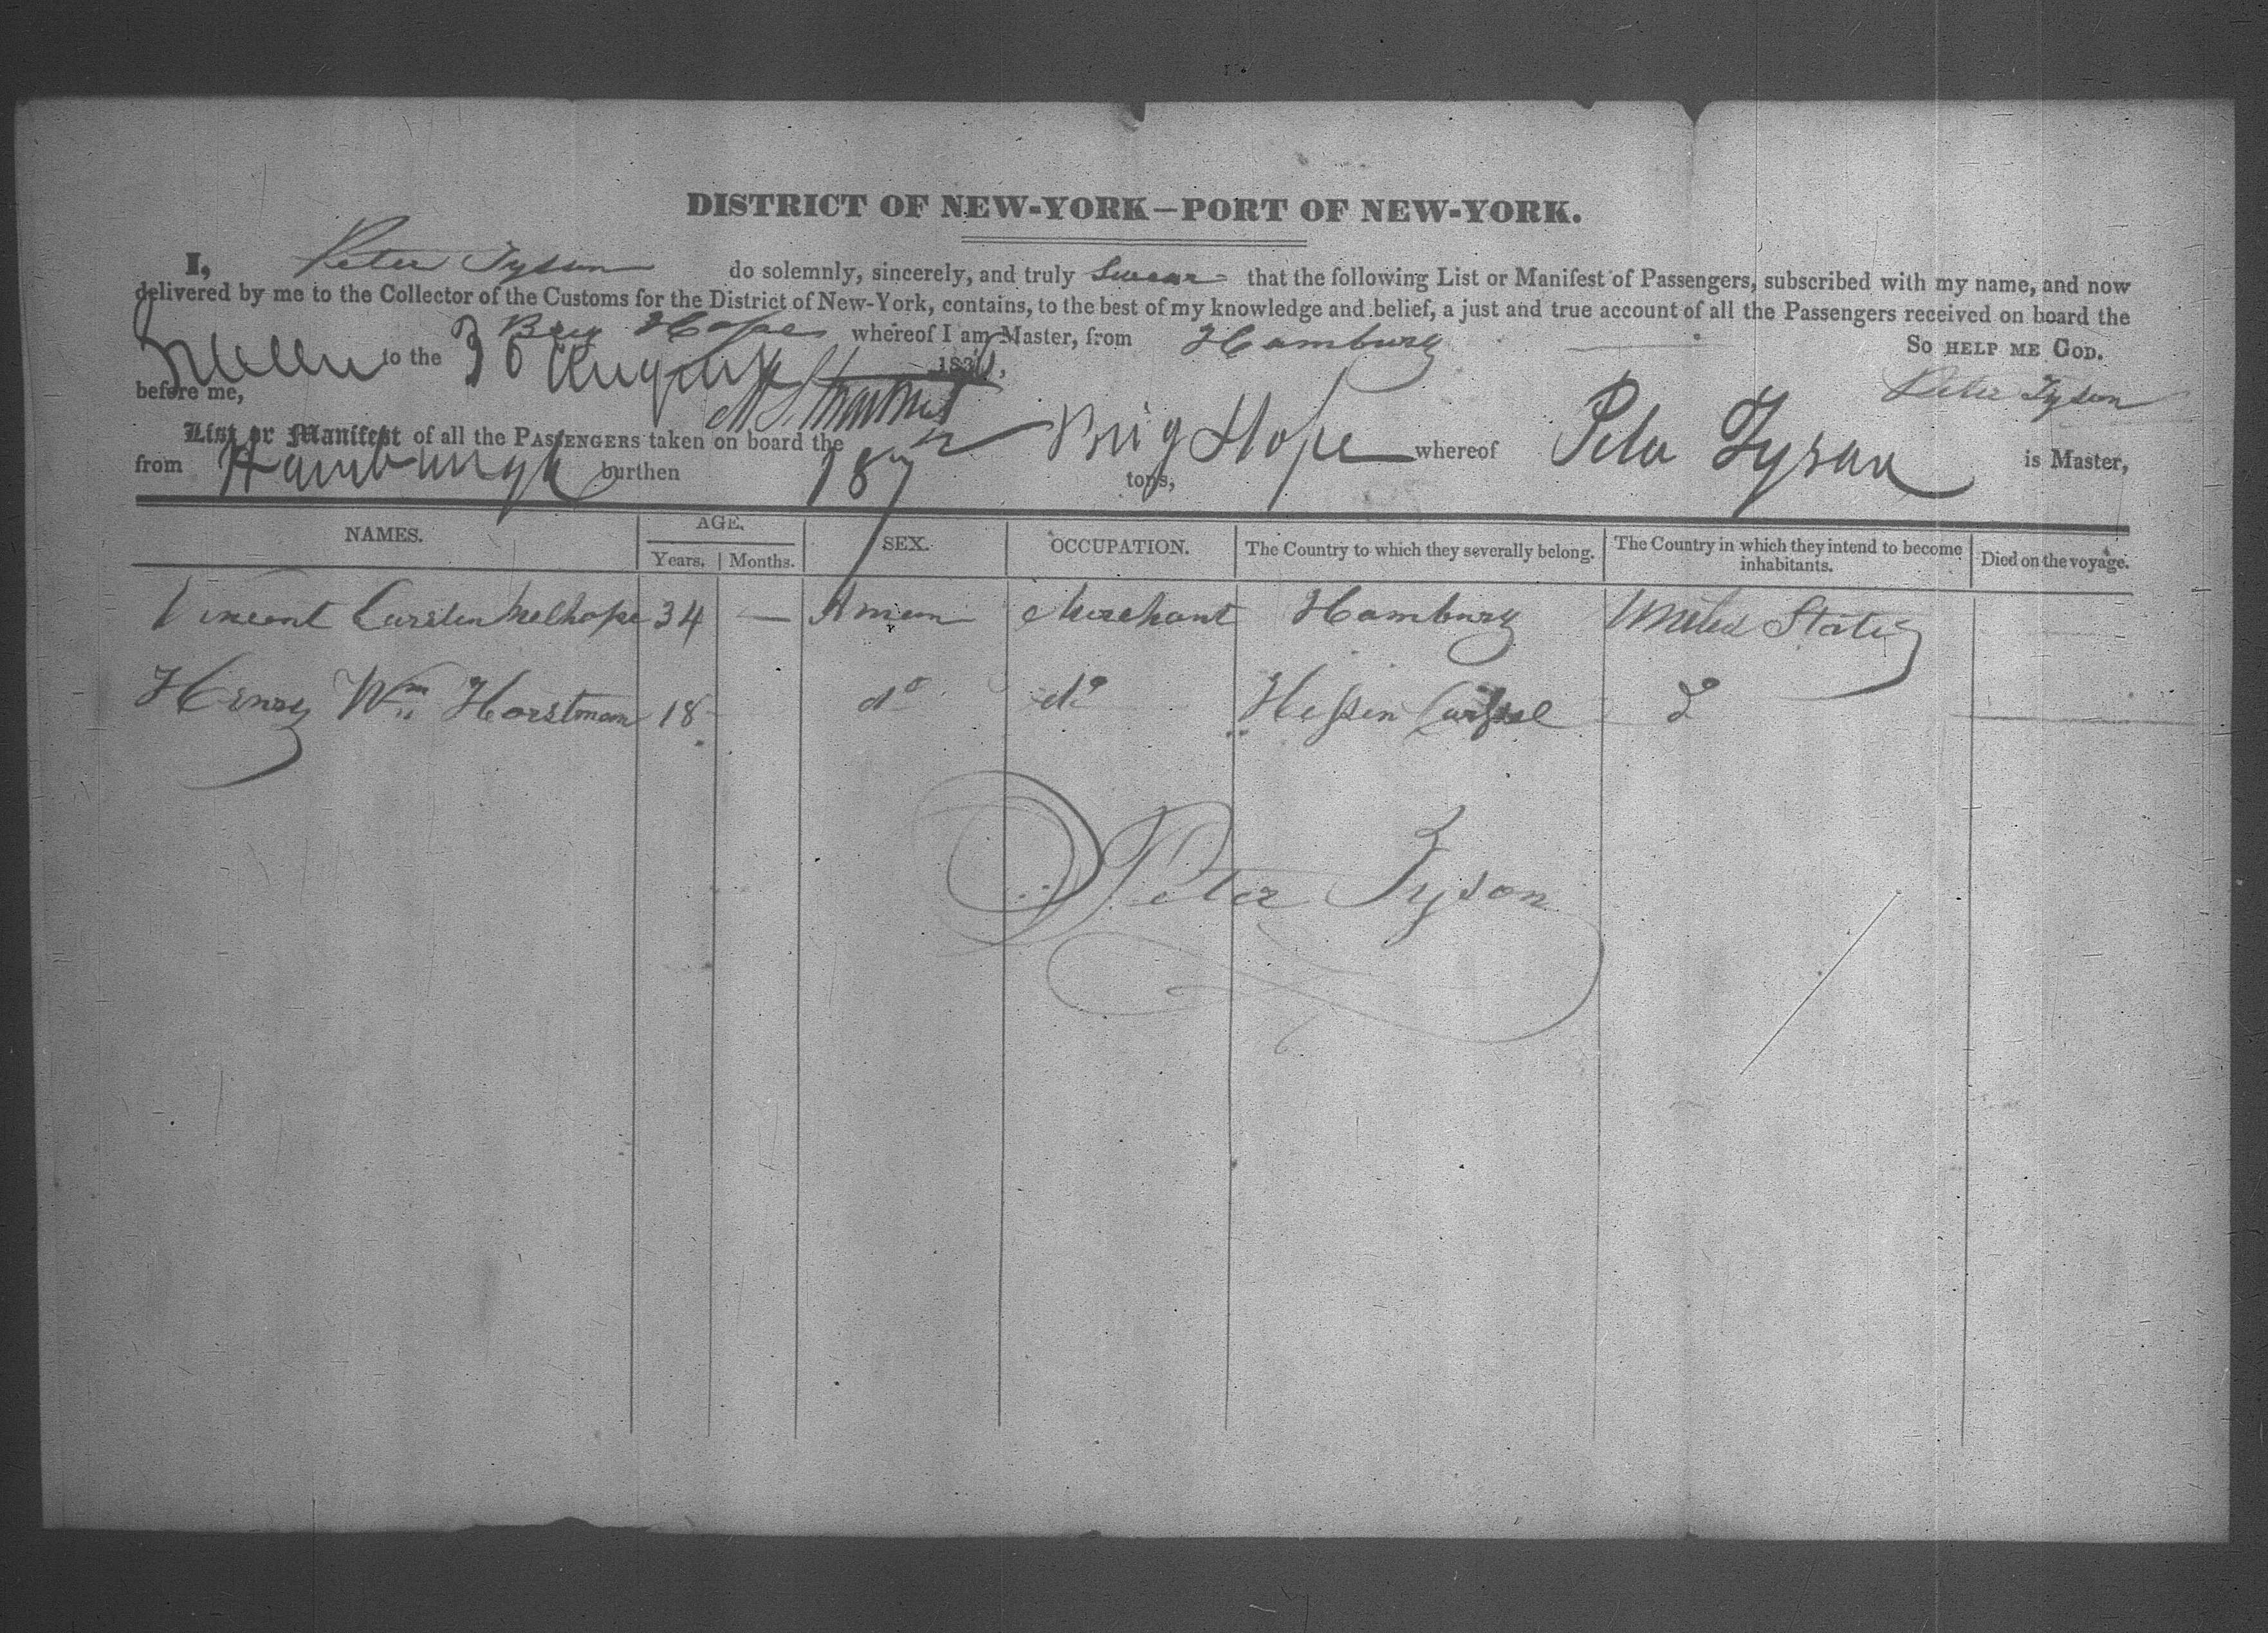 DISTRICT OF NEW-YORK—PORT OF NEW-YORK.
I, Peter Tyson do solemnly, sincerely, and truly Swear that the following List or Manifest of Passengers, subscribed with my name, and now
delivered by me to the Collector of the Customs for the District of New-York, contains, to the best of my knowledge and belief, a just and true account of all the Passengers received on board the
Brig Hope whereof I am Master, from Hamburg So HELP ME GOD.
to the 30 August 183
Peter Tyson
before me,
List or Manifest of all the PASSENGERS taken on board the Brig Hope whereof Peter Tyson is Master,
from Hamburgh burthen 187 tons,
NAMES. AGE. SEX. OCCUPATION. The Country to which they severally belong. The Country in which they intend to become inhabitants. Died on the voyage.
Years. Months.
Vincent Carsten 34 — A man Merchant Hamburg United States
Henry Wm Horstman 18 do do Hessen Cassel do
Peter Tyson